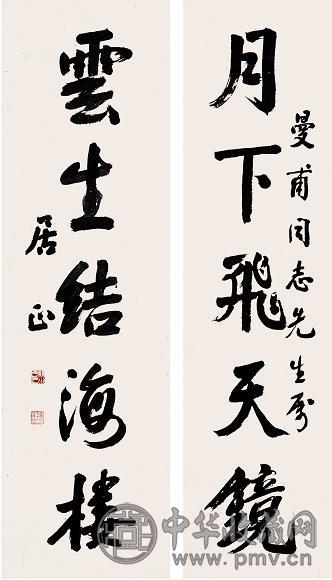 月下飛天鏡
曼甫同志先生屬
雲生結海樓
居正
中华收藏网
www.pmv.cn